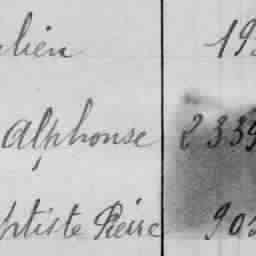 lien 19
Alphonse 2339
ptiste Pierre 90